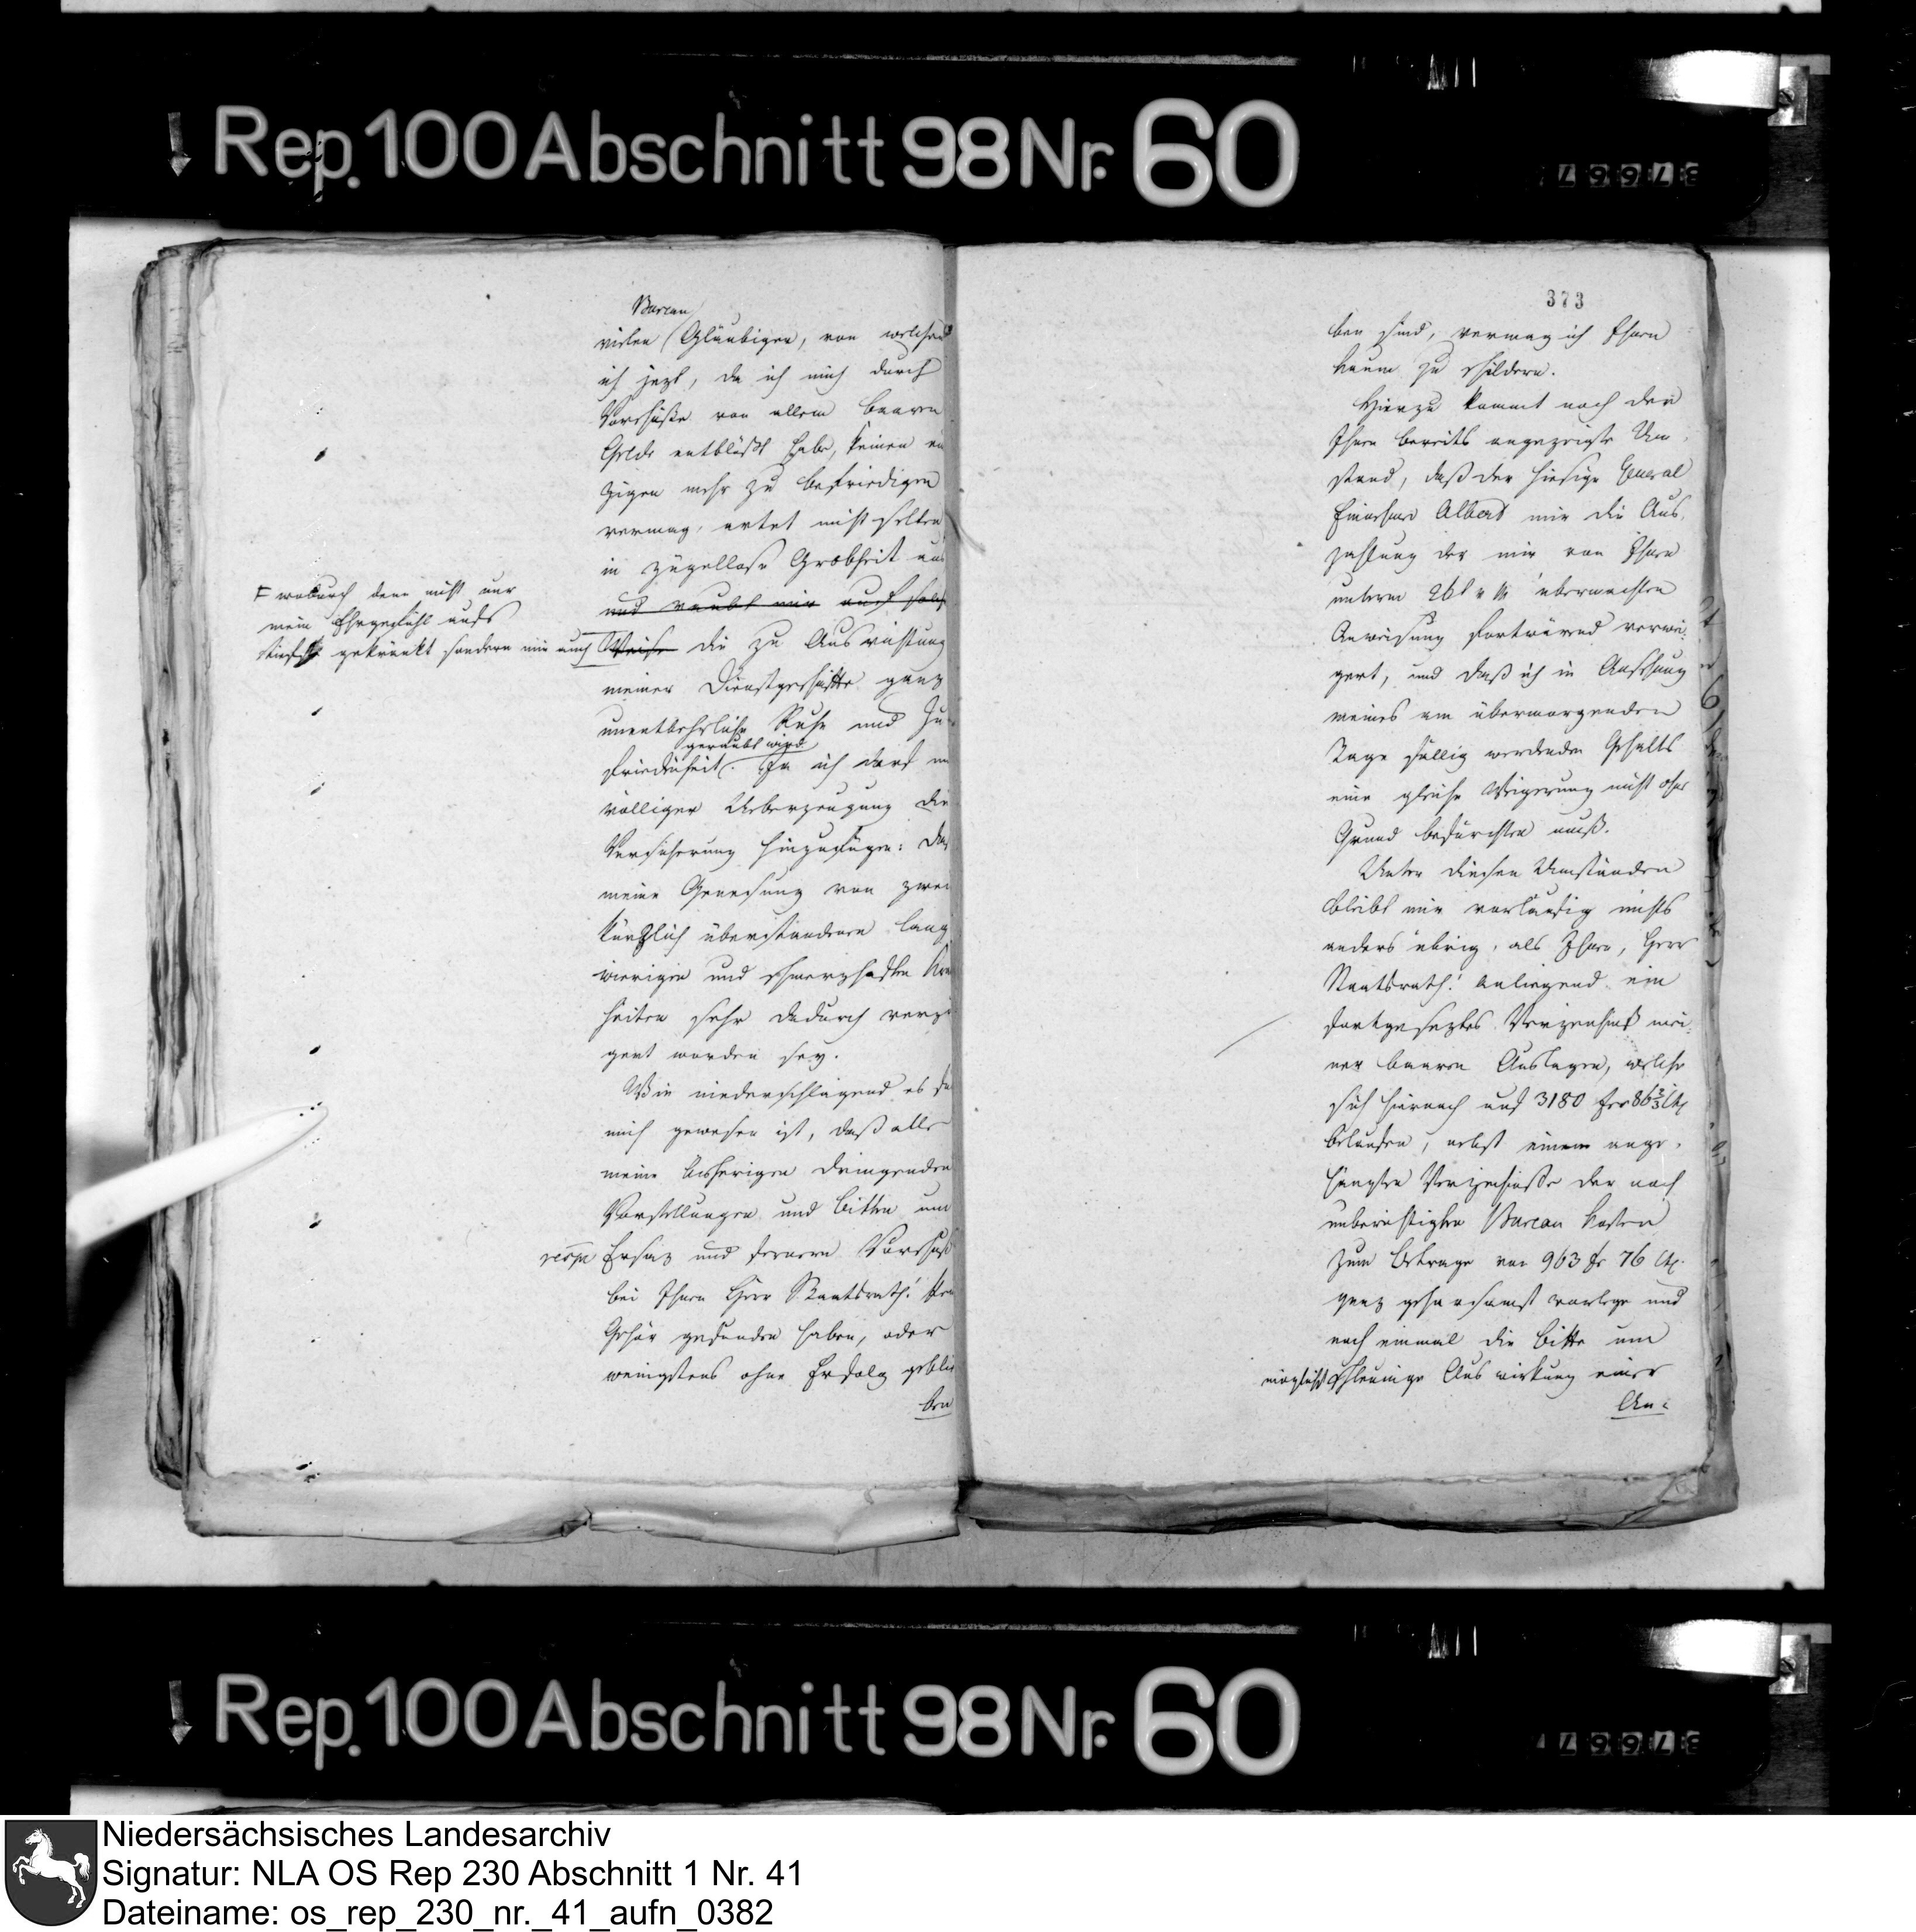 Rep. 100 Abschnitt 98 Nr. 60
37667
Bureau
vielen Gläubiger, von welchen
ich jezt, da ich mich durch
Vorschüße von allem baaren
Gelde entblößt habe, keinen ein
zigen mehr zu befriedigen
vermag, artet nicht selten
in zügellose Grobheit aus
und raubt mir auch solche
Weise die zu Ausrichtung
meiner Dienstgeschäfte ganz
unentbehrliche Ruhe und Zu
geraubt wird
friedenheit. Ja ich darf mit
völliger Ueberzeugung die
Versicherung hinzufügen: daß
meine Genesung von zwei
kürzlich überstandenen lang
wierigen und schmerzhaften Kran
heiten sehr dadurch verzö
gert worden sey.
Wie niederschlagend es für
mich gewesen ist, daß alle
meine bisherigen dringenden
Vorstellungen und Bitten um
resp. Ersaz und fernern Vorschuß
bei Ihnen Herr Staatsrath!
Gehör gefunden haben, oder
wenigstens ohne Erfolg geblie
ben
F wodurch denn nicht nur
mein Ehrgefühl aufs
tiefste gekränkt sondern mir auch
373
ben sind, vermag ich Ihnen
kaum zu schildern.
Hierzu kommt noch der
Ihnen bereits angezeigte Um-
stand, daß der hiesige General
Einnehmer Albert mir die Aus-
zahlung der mir von Ihnen
unterm 26t v M übermachten
Anweisung fortwärend verwei-
gert, und daß ich in Ansehung
meines am übermorgenden
Tage fällig werdenden Gehalts
eine gleiche Weigerung nicht ohne
Grund befürchten muß.
Unter diesen Umständen
bleibt mir vorläufig nichts
anders übrig, als Ihnen, Herr
Staatsrath! anliegend ein
fortgeseztes Verzeichniß mei-
ner baaren Auslagen, welche
sich hiernach auf 3180 frs 86 2/3 Ct
belaufen, nebst einem ange-
hängten Verzeichniße der noch
unberichtigten Bureau Kosten
zum Betrage von 963 fr 76 Ct.
ganz gehorsamst vorlege und
noch einmal die Bitte um
möglichst schleunige Auswirkung einer
An-
Rep. 100 Abschnitt 98 Nr. 60
37667
Niedersächsisches Landesarchiv
Signatur: NLA OS Rep 230 Abschnitt 1 Nr. 41
Dateiname: os_rep_230_nr._41_aufn_0382